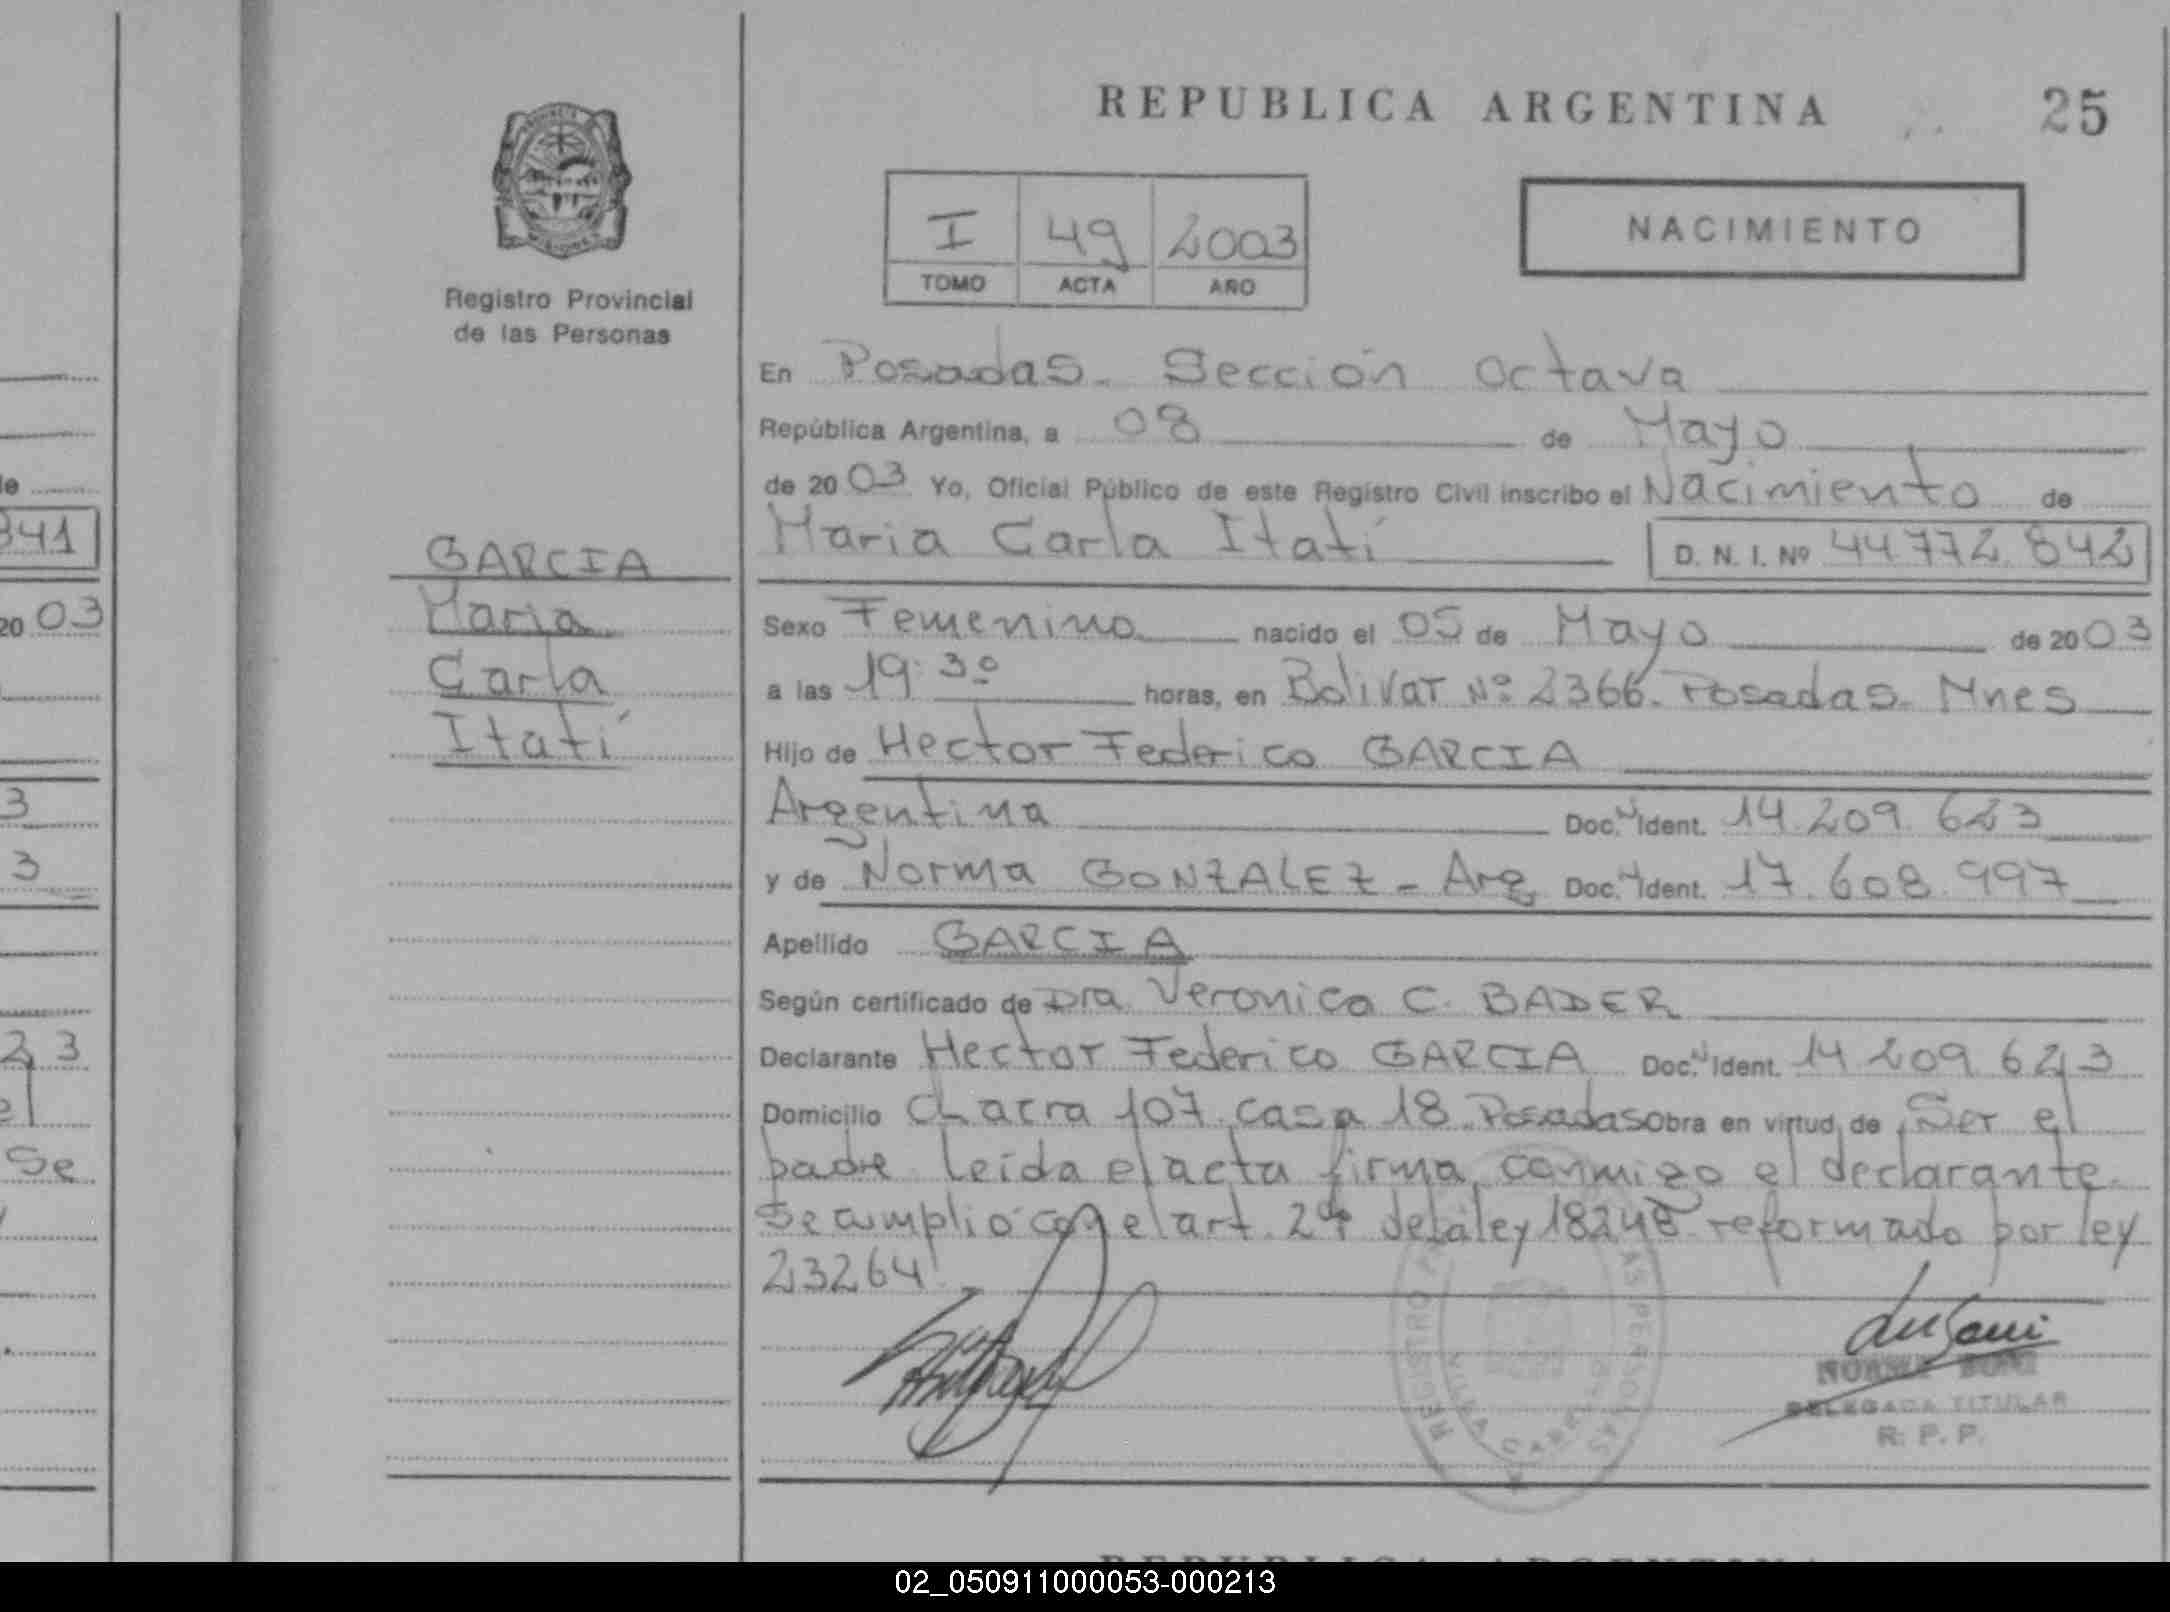 REPUBLICA ARGENTINA 25
PROVINCIA
MISIONES
Registro Provincial
de las Personas
I 49 2003
TOMO ACTA AÑO
NACIMIENTO
En Posadas. Sección octava
República Argentina, a 08 de Mayo
de 2003 Yo, Oficial Público de este Registro Civil inscribo el Nacimiento de
Maria Carla Itatí D. N. I. Nº 44772.842
GARCIA
Maria
Carla
Itatí
Sexo Femenino nacido el 05 de Mayo de 2003
a las 19:30 horas, en Bolivar Nº 2366. Posadas. Mnes
Hijo de Hector Federico GARCIA
Argentina Doc. Ident. 14.209.623
y de Norma GONZALEZ - Arg Doc. Ident. 17.608.997
Apellido GARCIA
Según certificado de Dra Veronica C. BADER
Declarante Hector Federico GARCIA Doc. Ident. 14 209 623
Domicilio Chacra 107. casa 18. Posadas obra en virtud de Ser el
padre. Leída el acta firma conmigo el declarante.
Se cumplió con el art. 2do de la ley 18248 reformado por ley
23264.
NORMA BONI
DELEGADA TITULAR
R. P. P.
841
2003
3
3
23
el
Se
02_050911000053-000213